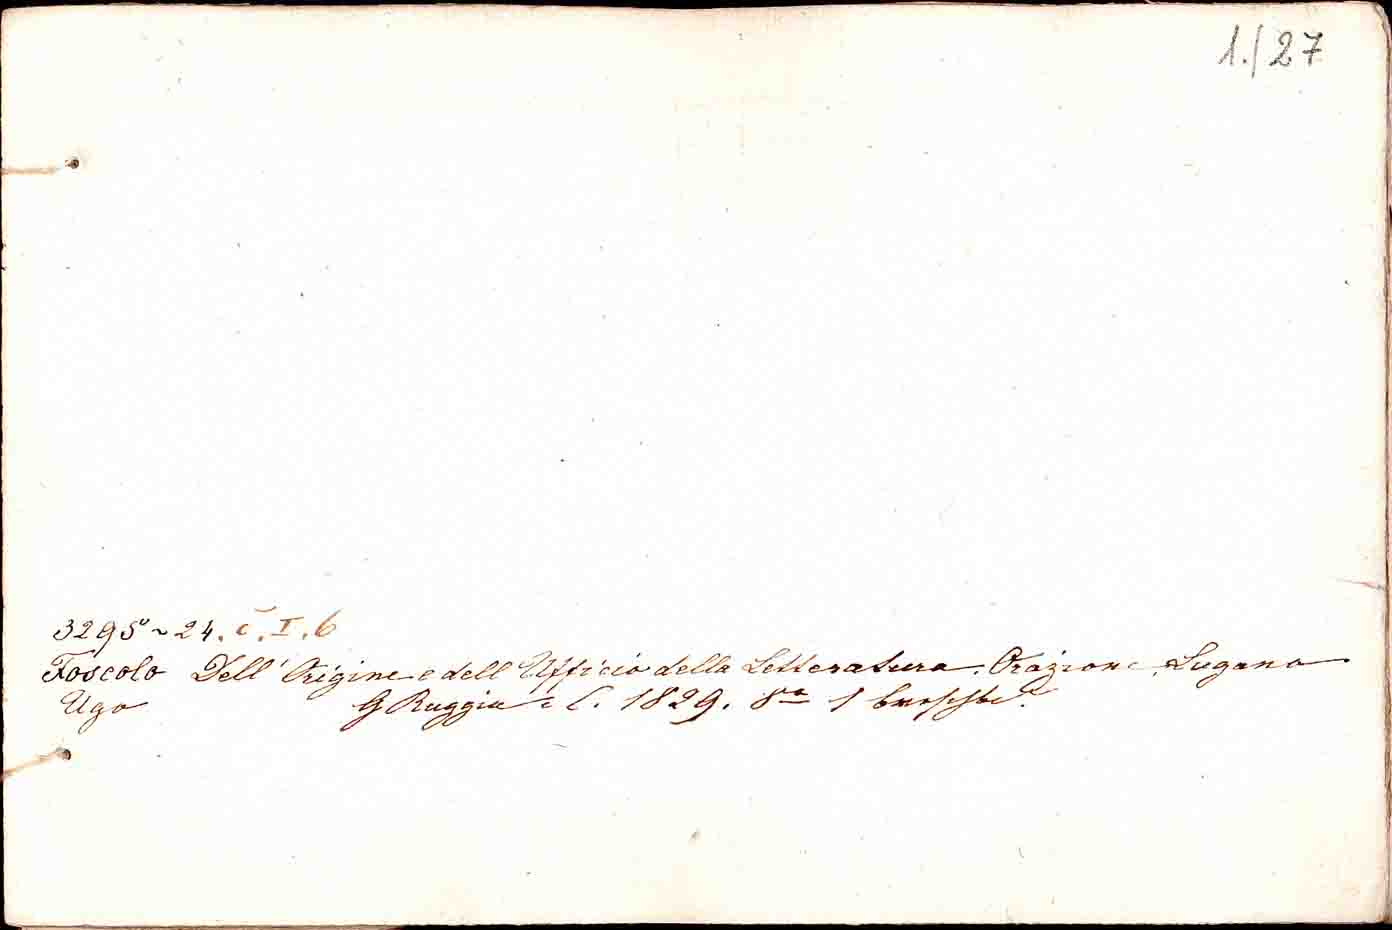 1./27
3295⁰~24. c̆. I. 6
Foscolo Dell' Origine e dell Ufficio della Letteratura. Orazione. Lugano
Ugo G Ruggia e C. 1829. 8ª 1